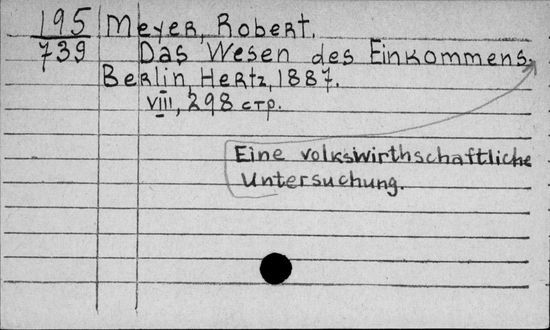 195 Meyer, Robert.
739 Das Wesen des Einkommens.
Berlin, Hertz, 1887.
VIII, 298 стр.
Eine volkswirthschaftliche
Untersuchung.